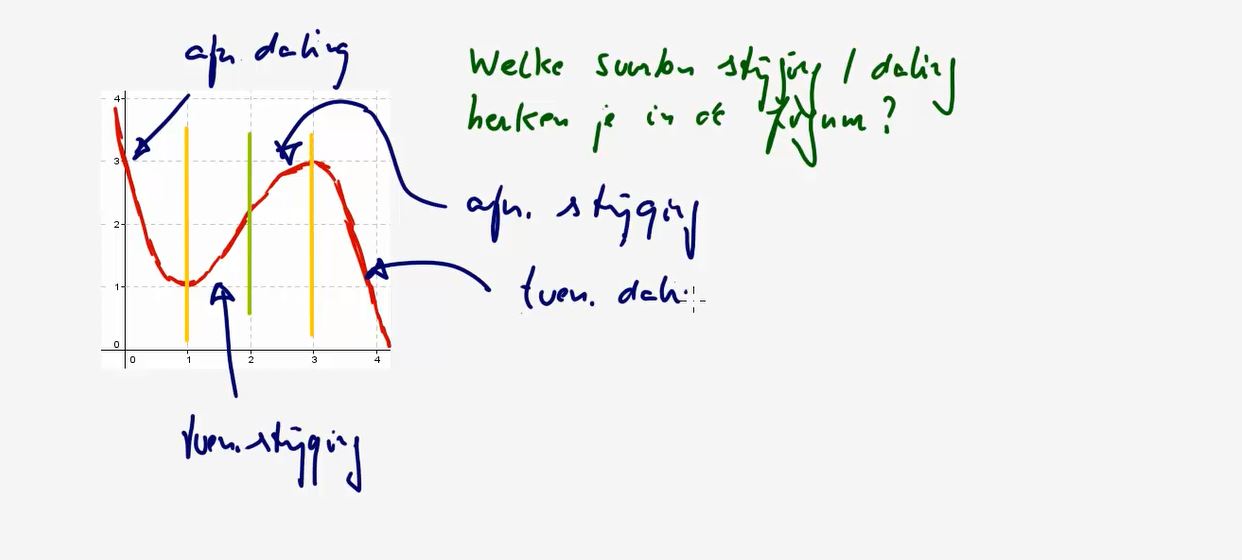 afn. daling
Welke soorten stijging / daling
herken je in dit
afn. stijging
toen. dali
toen. stijging
4
3
2
1
0
0 1 2 3 4